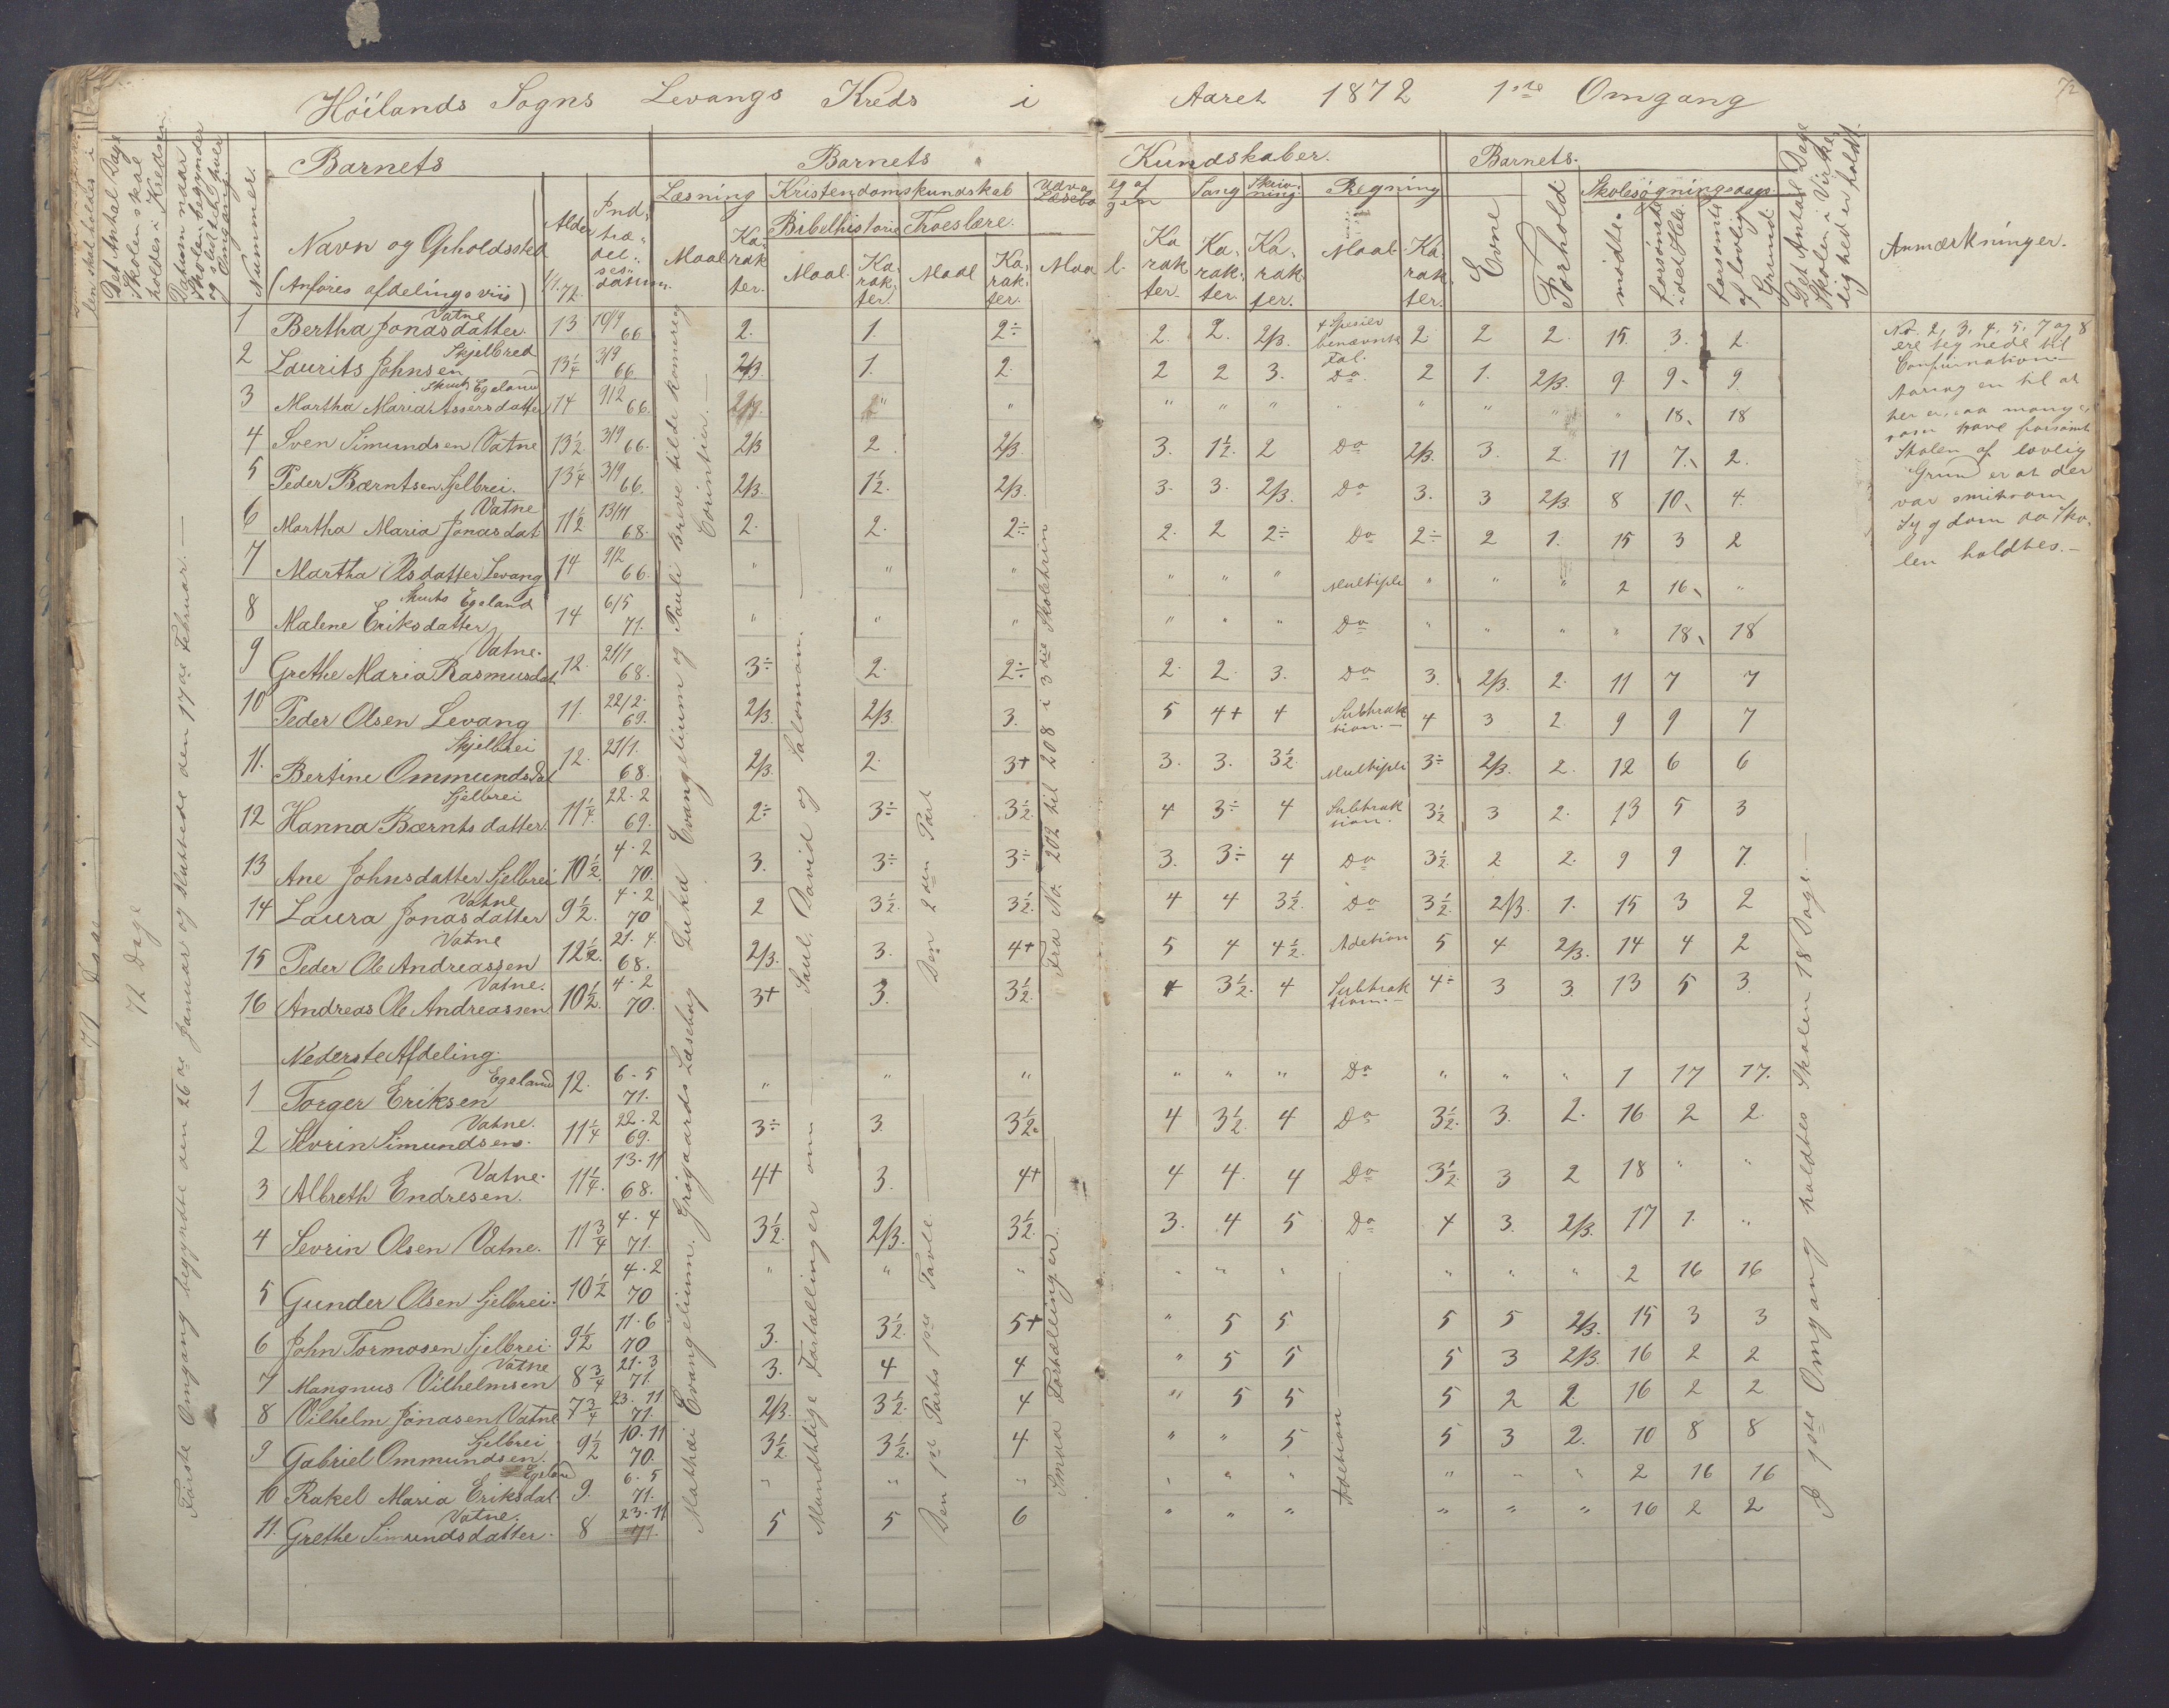 Höilands Sogns Levangs Kreds i Aaret 1872 1ste Omgang
Det Antal Dage Skolen skal holdes i Kredsen
Datum naar Skolen begynder og sluttet hver Omgang
Nummer.
Barnets
Navn og Opholdssted
(Anføres afdelingsviis)
Alder 1/1 72.
Indtrædelsesdatum.
Barnets Kundskaber.
Læsning Kristendomskundskab Udvalg af Læsebogen Sang Skrivning Regning
Bibelhistorie Troeslære.
Maal Karakter. Maal Karakter Maal Karakter. Maal. Karakter. Karakter. Karakter. Maal Karakter.
Barnets.
Evne Forhold Skolesøgningsdage.
mødte. forsømte i det Hele. forsømte af lovlig Grund.
Det Antal Dage Skolen i Virkelighed er holdt.
Anmærkninger.
72 Dage
Første Omgang begyndte den 26de Januar og sluttede den 17de Februar.
Mathæi Evangelium. Grøgaards Læsebog Lukæ Evangelium og Pauli Breve til de Romere og Corintier.
Mundtlige Fortællinger om Saul, David og Salomon.
Den 1ste Parts 1ste Tavle. Den 2den Part
Smaa Fortællinger. Fra No. 202 til 208 i 3die Skoletrin
I 1ste Omgang holdtes Skolen 18 Dage.
1 Bertha Jonasdatter. Vatne 13 10/9 66 2. 1. 2÷ 2. 2. 2/3. 4 Spesier benævnte Tal. 2 2 2. 15. 3. 2.
2 Laurits Johnsen Skjelbred 13 1/4 3/9 66. 2/3. 1. 2. 2 2 3. Do 2 1. 2/3. 9. 9. 9.
3 Martha Maria Assersdatter Egeland 14 9/2 66. " " " " " " " " 18. 18
4 Sven Simundsen Vatne 13 1/2. 3/9 66. 2/3 2. 2/3. 3. 1 1/2. 2 Do 2/3. 3. 2. 11 7. 2.
5 Peder Bærntsen Sjelbrei. 13 1/4 3/9 66. 2/3. 1 1/2. 2/3. 3. 3. 2/3. Do 3. 3 2/3. 8 10. 4.
6 Martha Maria Jonasdat Vatne 11 1/2 13/11 68. 2. 2. 2÷ 2. 2 2÷ Do 2÷ 2 1. 15 3 2
7 Martha Olsdatter Levang 14 9/2 66. " " " " " " Multipli " " " 2 16. "
8 Malene Eriksdatter Egeland 14 6/5 71. " " " " " " Do " " " " 18. 18
9 Grethe Maria Rasmusdat Vatne. 12. 21/1 68. 3÷ 2. 2÷ 2. 2. 3. Do 3. 2/3. 2. 11 7 7
10 Peder Olsen Levang 11. 22/2. 69. 2/3. 2/3. 3. 5 4+ 4 Subtraktion. 4 3 2. 9 9 7
11. Bertine Ommundsdat Skjelbrei 12. 21/1. 68. 2/3. 2. 3+ 3. 3. 3 1/2 Multipli 3÷ 2/3. 2. 12 6 6
12 Hanna Bærntsdatter. Sjelbrei 11 1/4. 22-2 69. 2÷ 3÷ 3 1/2. 4 3÷ 4 Subtraktion. 3 1/2 3 2. 13 5 3
13 Ane Johnsdatter Sjelbrei 10 1/2. 4-2 70. 3. 3÷ 3÷ 3. 3÷ 4 Do 3 1/2. 2. 2. 9 9 7.
14 Laura Jonasdatter Vatne 9 1/2. 4-2 70 2 3 1/2. 3 1/2. 4 4 3 1/2. Do 3 1/2. 2/3. 1. 15 3 2
15 Peder Ole Andreassen Vatne 12 1/2. 21-4. 68. 2/3. 3. 4+ 5 4 4 1/2. Adetion 5 4 2/3. 14 4 2
16 Andreas Ole Andreassen Vatne. 10 1/2. 4-2 70. 3+ 3. 3 1/2. 4 3 1/2. 4 Subtraktion. 4÷ 3 3. 13 5 3.
Nederste Afdeling.
1 Torger Eriksen Egeland 12. 6-5 71. " " " " " " Do " " " 1 17 17.
2 Sevrin Simundsen. Vatne. 11 1/4 22-2 69. 3÷ 3. 3 1/2. 4 3 1/2. 4 Do 3 1/2. 3. 2. 16 2 2.
3 Albreth Endresen. Vatne. 11 1/4. 13-11 68. 4+ 3. 4+ 4 4. 4 Do 3 1/2. 3 2 18 " "
4 Sevrin Olsen Vatne. 11 3/4 4-4 71. 3 1/2. 2/3. 3 1/2. 3. 4 5 Do 4 3. 2/3. 17 1. "
5 Gunder Olsen Sjelbrei. 10 1/2 4-2 70 " " " " " " " " " 2 16 16
6 John Tormosen Sjelbrei. 9 1/2 11-6 70 3. 3 1/2. 5+ " 5 5 5 5 2/3. 15 3 3
7 Mangnus Vilhelmsen Vatne 8 3/4 21-3 71. 3. 4 4 " 5 5 5 3 2/3. 16 2 2
8 Vilhelm Jonasen Vatne 7 3/4 23-11 71. 2/3. 3 1/2. 4 " 5 5 5 2 2 16 2 2
9 Gabriel Ommundsen. Sjelbrei 9 1/2 10-11 70. 3 1/2. 3 1/2. 4 " " 5 5 3 2. 10 8 8
10 Rakel Maria Eriksdat. Egeland 9. 6-5 71. " " " " " " " " " 2 16 16
11. Grethe Simundsdatter. Vatne. 8 23-11 71. 5 5 6 " " " " " " 16 2 2
Adetion
No. 2, 3, 4, 5, 7 og 8
ere tegnede til
Confirmation.
Aarsag en til at
her er saa mange
som have forsømt
Skolen af lovlig
Grund er at der
var smitsom
Sygdom da Sko-
len holdtes.